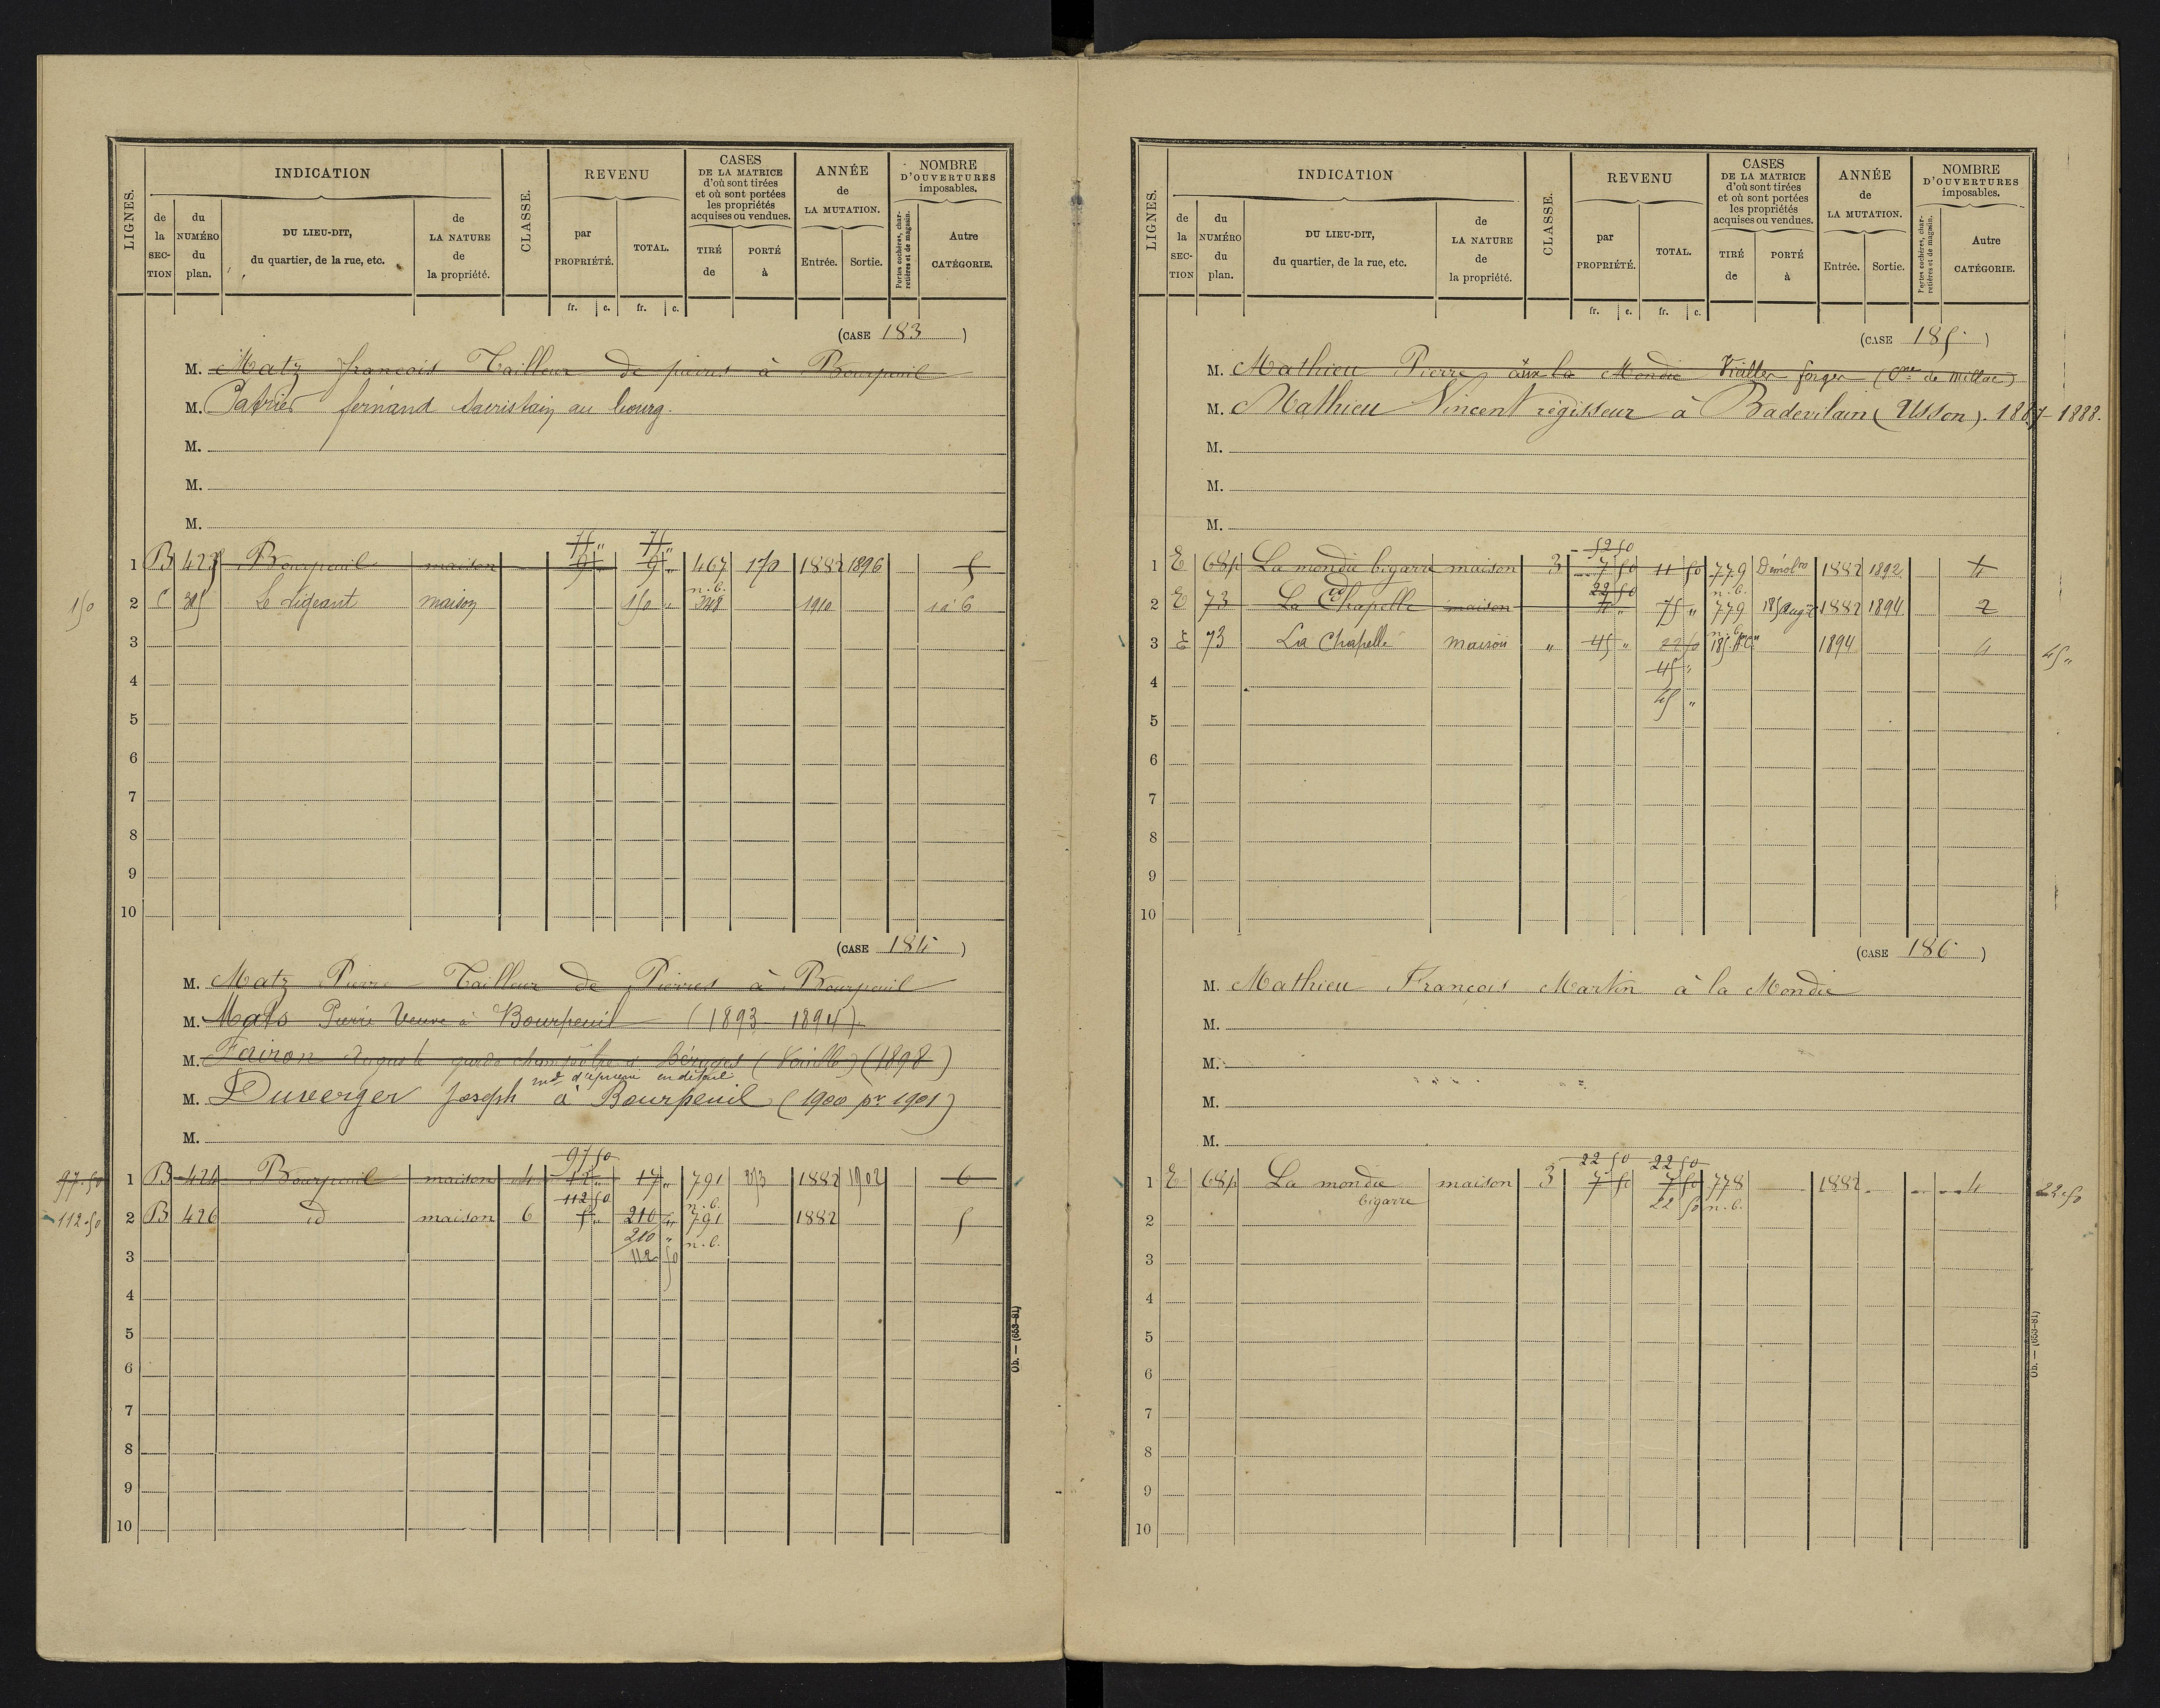 LIGNES.
INDICATION
de la SECTION
du NUMÉRO du plan.
DU LIEU-DIT, du quartier, de la rue, etc.
de LA NATURE de la propriété.
CLASSE.
REVENU
par PROPRIÉTÉ.
TOTAL.
CASES DE LA MATRICE d'où sont tirées et où sont portées les propriétés acquises ou vendues.
TIRÉ de
PORTÉ à
ANNÉE de LA MUTATION.
Entrée.
Sortie.
NOMBRE D'OUVERTURES imposables.
Portes cochères, charretières et de magasin.
Autre CATÉGORIE.
fr. c. fr. c.
(CASE 183)
M. Matz françois Tailleur de pierres à Bourpeuil
M. Patrier fernand Sacristain au bourg.
M.
M.
M.
75 " 75 "
1 B 425 Bourpeuil maison 9 " 9 " 467 170 1882 1896 5
n.b.
150 2 C 305 Le Rigeant maison 150 " 348 1910 1 à 6
3
4
5
6
7
8
9
10
(CASE 184)
M. Matz Pierre Tailleur de Pierres à Bourpeuil
M. Mats Pierre Veuve à Bourpeuil (1893-1894)
M. Fairon Auguste garde champêtre à Béruges (1898)
md d'épicerie en détail
M. Duverger Joseph à Bourpeuil (1900 pr 1901)
M.
97 50
97.50 1 B 424 Bourpeuil maison 4 12 " 17 " 791 1882 1902 6
112 50 n.b.
112.50 2 B 426 id maison 6 5 " 210 " 791 1882 5
210 " n.b.
3 112 50
4
5
6
7
8
9
10
Ob. — (653-81)
LIGNES.
INDICATION
de la SECTION
du NUMÉRO du plan.
DU LIEU-DIT, du quartier, de la rue, etc.
de LA NATURE de la propriété.
CLASSE.
REVENU
par PROPRIÉTÉ.
TOTAL.
CASES DE LA MATRICE d'où sont tirées et où sont portées les propriétés acquises ou vendues.
TIRÉ de
PORTÉ à
ANNÉE de LA MUTATION.
Entrée.
Sortie.
NOMBRE D'OUVERTURES imposables.
Portes cochères, charretières et de magasin.
Autre CATÉGORIE.
fr. c. fr. c.
(CASE 185)
M. Mathieu Pierre à la Mondie Vialler forger (Cne de Millac)
M. Mathieu Vincent régisseur à Badevilain (Usson). 1887-1888.
M.
M.
M.
52 50
1 E 68p La mondie bigarre maison 3 7 50 11 50 779 Démolon 1882 1892 4
22 50 n.b.
2 E 73 La Chapelle maison 4 " 75 " 779 185 augon 1882 1894 2
n.b.
3 E 73 La Chapelle maison " 45 " 22 50 185 1894 4 45 "
45 "
4
45 "
5
6
7
8
9
10
(CASE 186)
M. Mathieu François Martin à la Mondie
M.
M.
M.
M.
22 50 22 50
1 E 68p La mondie bigarre maison 3 7 50 7 50 778 1882 4 22.50
22 50 n.b.
2
3
4
5
6
7
8
9
10
Ob. — (653-81)